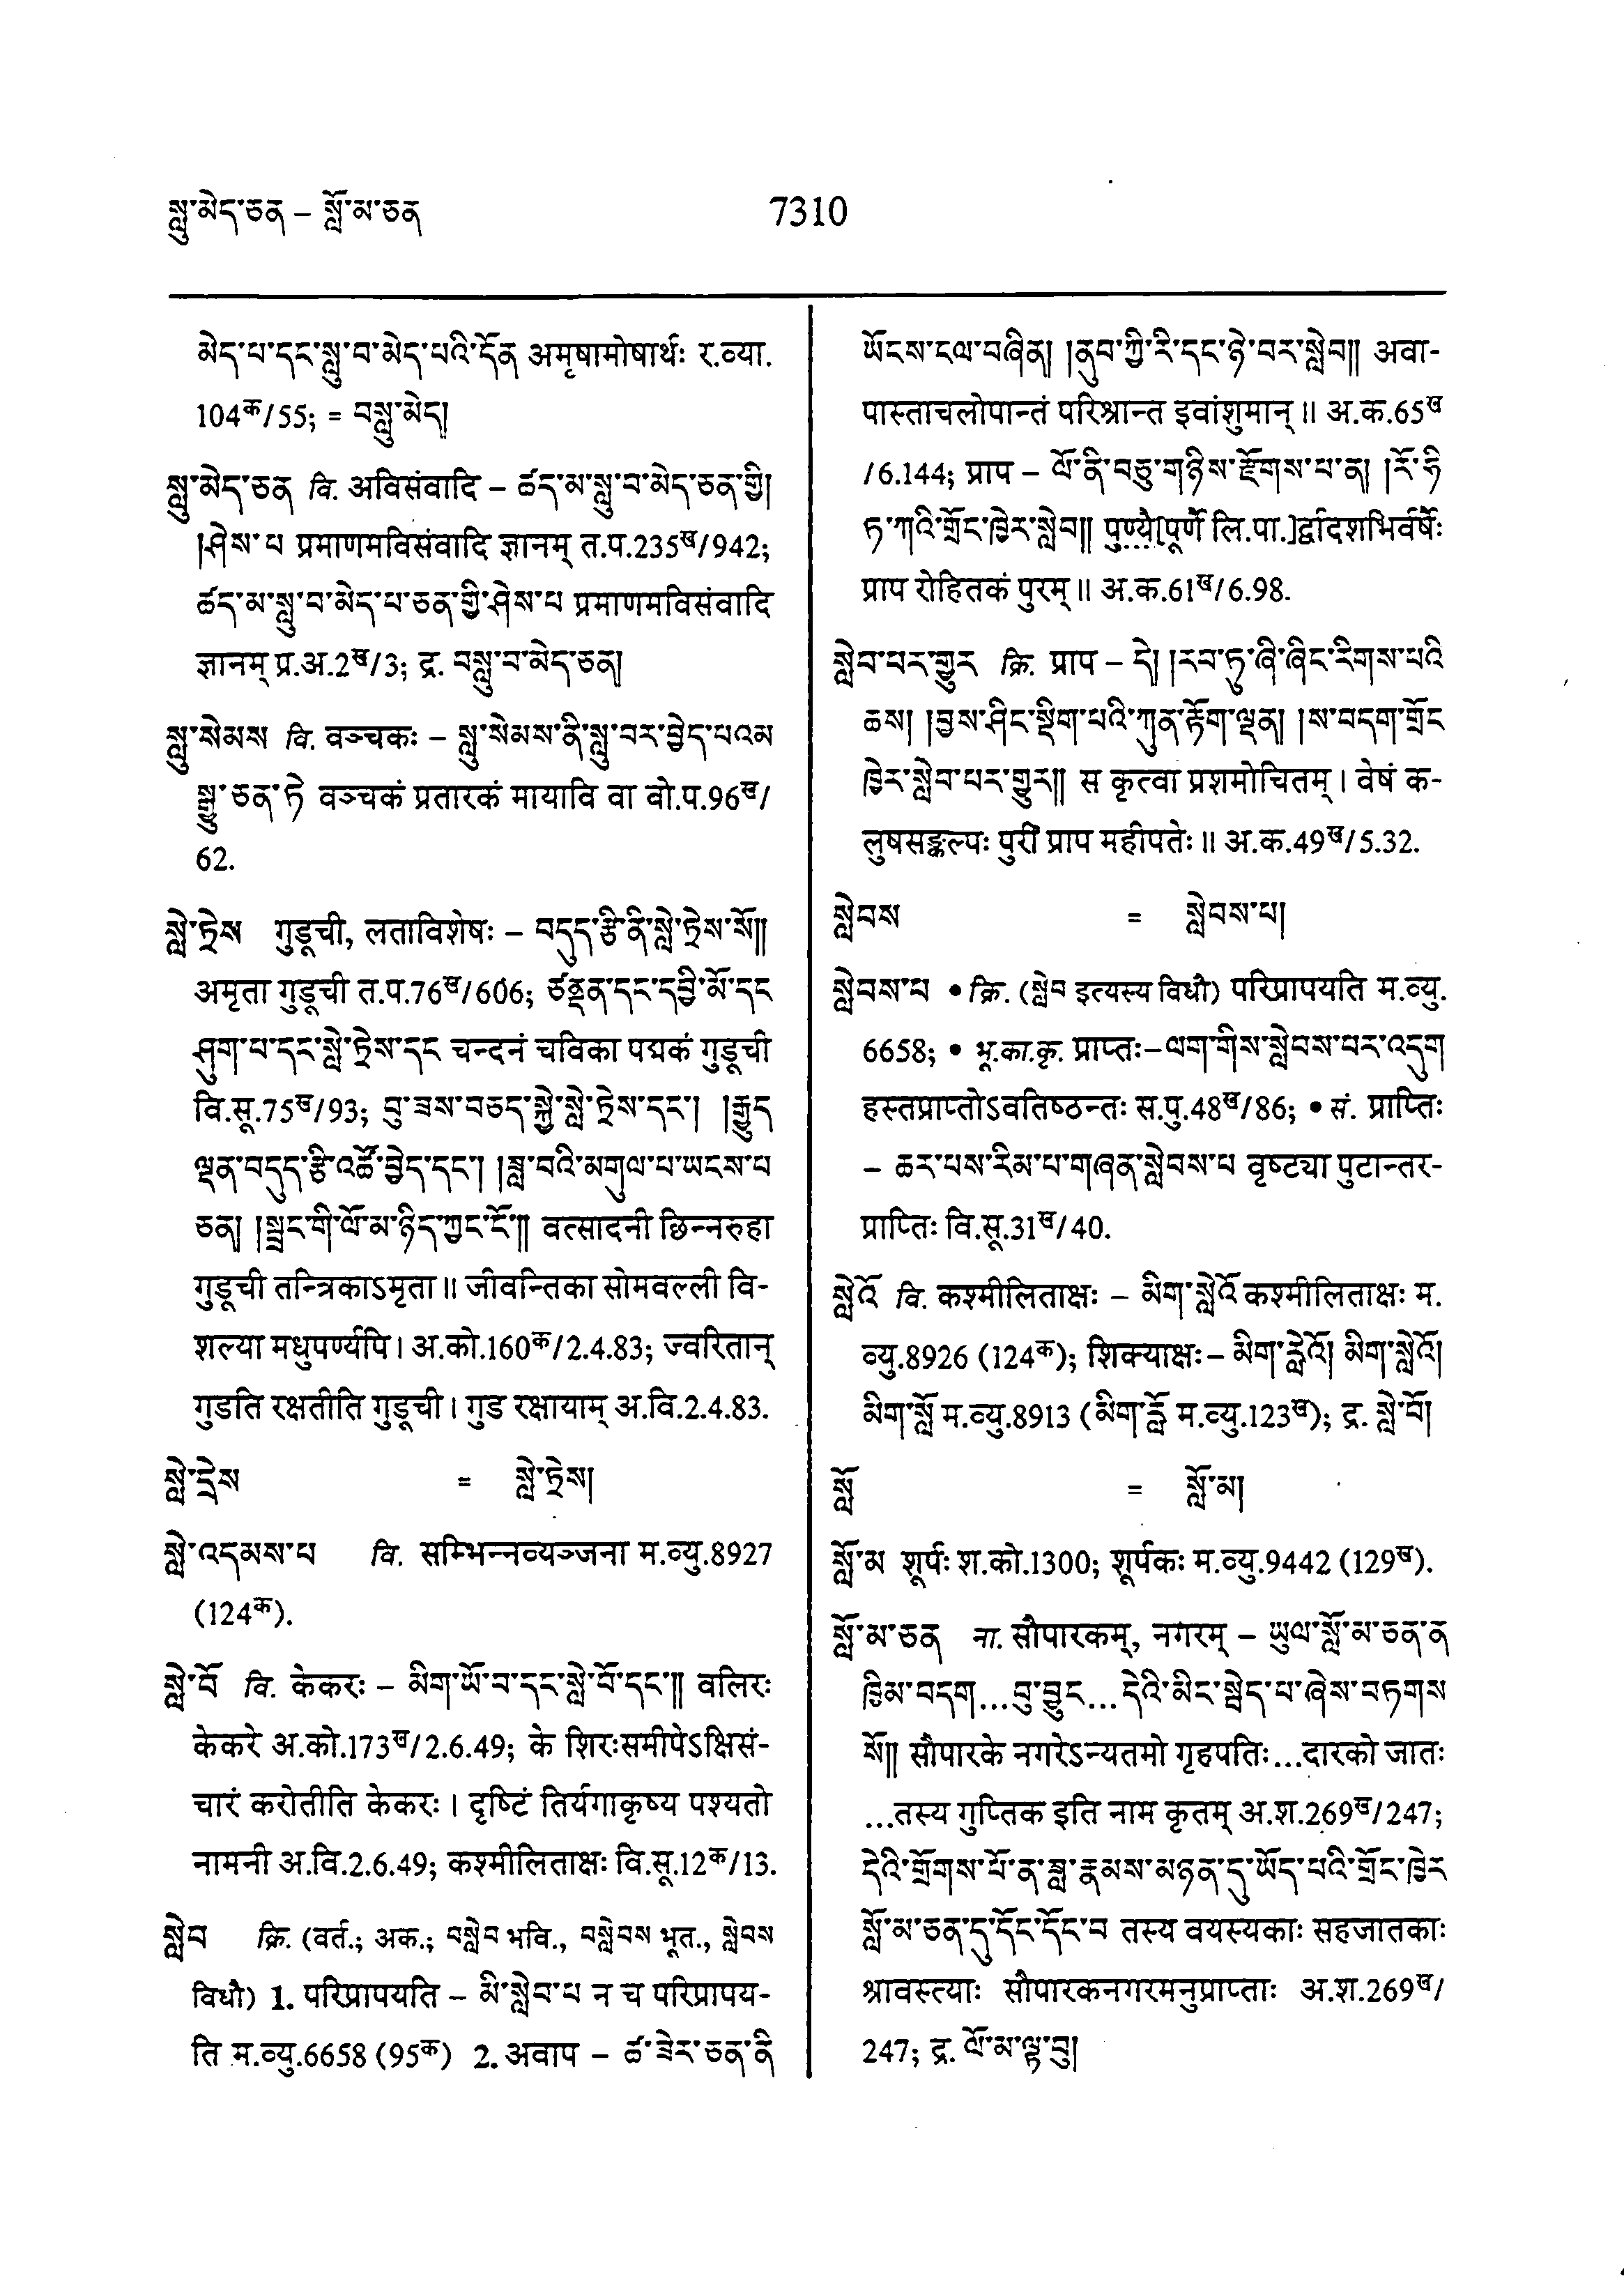 སླུ་མེད་ཅན – སློ་མ་ཅན
7310
མེད་པ་དང་སླུ་བ་མེད་པའི་དོན अमृषामोषार्थः र.व्या.
104क/55; = བསླུ་མེད།
སླུ་མེད་ཅན वि. अविसंवादि – ཚད་མ་སླུ་བ་མེད་ཅན་གྱི།
།ཤེས་པ प्रमाणमविसंवादि ज्ञानम् त.प.235ख/942;
ཚད་མ་སླུ་བ་མེད་པ་ཅན་གྱི་ཤེས་པ प्रमाणमविसंवादि
ज्ञानम् प्र.अ.2ख/3; द्र. བསླུ་བ་མེད་ཅན།
སླུ་སེམས वि. वञ्चकः – སླུ་སེམས་ནི་སླུ་བར་བྱེད་པའམ
སྒྱུ་ཅན་ཏེ वञ्चकं प्रतारकं मायावि वा बो.प.96ख/
62.
སླེ་ཏྲེས गुडूची, लताविशेषः – བདུད་རྩི་ནི་སླེ་ཏྲེས་སོ༎
अमृता गुडूची त.प.76ख/606; ཙནྡན་དང་དབྱི་མོ་དང
ཤུག་པ་དང་སླེ་ཏྲེས་དང चन्दनं चविका पद्मकं गुडूची
वि.सू.75ख/93; བུ་ཟས་བཅད་སྐྱེ་སླེ་ཏྲེས་དང་། །རྒྱུད
ལྡན་བདུད་རྩི་འཚོ་བྱེད་དང་། །ཟླ་བའི་མགུལ་པ་ཡངས་པ
ཅན། །སྦྲང་གི་ལོ་མ་ཉིད་ཀྱང་ངོ་༎ वत्सादनी छिन्नरुहा
गुडूची तन्त्रिकाऽमृता ॥ जीवन्तिका सोमवल्ली वि-
शल्या मधुपर्ण्यपि । अ.को.160क/2.4.83; ज्वरितान्
गुडति रक्षतीति गुडूची । गुड रक्षायाम् अ.वि.2.4.83.
སླེ་དྲེས = སླེ་ཏྲེས།
སླེ་འདམས་པ वि. सम्भिन्नव्यञ्जना म.व्यु.8927
(124क).
སླེ་བོ वि. केकरः – མིག་ཡོ་བ་དང་སླེ་བོ་དང་༎ वलिरः
केकरे अ.को.173ख/2.6.49; के शिरःसमीपेऽक्षिसं-
चारं करोतीति केकरः । दृष्टिं तिर्यगाकृष्य पश्यतो
नामनी अ.वि.2.6.49; कश्मीलिताक्षः वि.सू.12क/13.
སླེབ क्रि. (वर्त.; अक.; བསླེབ भवि., བསླེབས भूत., སླེབས
विधौ) 1. परिप्रापयति – མི་སླེབ་པ न च परिप्रापय-
ति म.व्यु.6658 (95क) 2. अवाप – ཚ་ཟེར་ཅན་ནི
ཡོངས་ངལ་བཞིན། །ནུབ་ཀྱི་རི་དང་ཉེ་བར་སླེབ༎ अवा-
पास्ताचलोपान्तं परिश्रान्त इवांशुमान् ॥ अ.क.65ख
/6.144; प्राप – ལོ་ནི་བཅུ་གཉིས་རྫོགས་པ་ན། །རོ་ཧི
ཏ་ཀའི་གྲོང་ཁྱེར་སླེབ༎ पुण्यै[पूर्णै लि.पा.]र्द्वादशभिर्वर्षैः
प्राप रोहितकं पुरम् ॥ अ.क.61ख/6.98.
སླེབ་པར་གྱུར क्रि. प्राप – དེ། །རབ་ཏུ་ཞི་ཞིང་རིགས་པའི
ཆས། །བྱས་ཤིང་སྡིག་པའི་ཀུན་རྟོག་ལྡན། །ས་བདག་གྲོང
ཁྱེར་སླེབ་པར་གྱུར༎ स कृत्वा प्रशमोचितम् । वेषं क-
लुषसङ्कल्पः पुरीं प्राप महीपतेः ॥ अ.क.49ख/5.32.
སླེབས = སླེབས་པ།
སླེབས་པ • क्रि. (སླེབ इत्यस्य विधौ) परिप्रापयति म.व्यु.
6658; • भू.का.कृ. प्राप्तः–ལག་གིས་སླེབས་པར་འདུག
हस्तप्राप्तोऽवतिष्ठन्तः स.पु.48ख/86; • सं. प्राप्तिः
– ཆར་པས་རིམ་པ་གཞན་སླེབས་པ वृष्ट्या पुटान्तर-
प्राप्तिः वि.सू.31ख/40.
སླེའོ वि. कश्मीलिताक्षः – མིག་སླེའོ कश्मीलिताक्षः म.
व्यु.8926 (124क); शिक्याक्षः – མིག་རླེའོ། མིག་སླེའོ།
མིག་སློ म.व्यु.8913 (མིག་རློ म.व्यु.123ख); द्र. སླེ་བོ།
སློ = སློ་མ།
སློ་མ शूर्पः श.को.1300; शूर्पकः म.व्यु.9442 (129ख).
སློ་མ་ཅན ना. सौपारकम्, नगरम् – ཡུལ་སློ་མ་ཅན་ན
ཁྱིམ་བདག...བུ་བྱུང...དེའི་མིང་སྦེད་པ་ཞེས་བཏགས
སོ༎ सौपारके नगरेऽन्यतमो गृहपतिः...दारको जातः
...तस्य गुप्तिक इति नाम कृतम् अ.श.269ख/247;
དེའི་གྲོགས་པོ་ན་ཟླ་རྣམས་མཉན་དུ་ཡོད་པའི་གྲོང་ཁྱེར
སློ་མ་ཅན་དུ་དོང་དོང་བ तस्य वयस्यकाः सहजातकाः
श्रावस्त्याः सौपारकनगरमनुप्राप्ताः अ.श.269ख/
247; द्र. ལོ་མ་ལྟ་བུ།